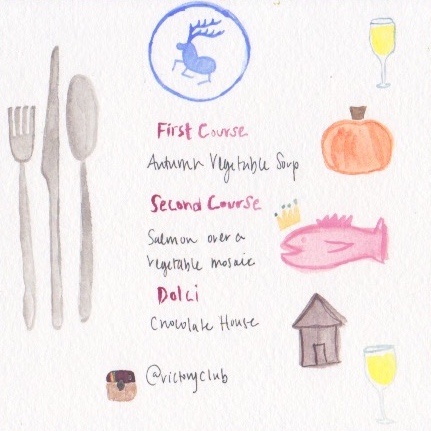 First Course
Autumn Vegetable Soup
Second Course
Salmon over a
vegetable mosaic
Dolci
Chocolate House
@victoryclub